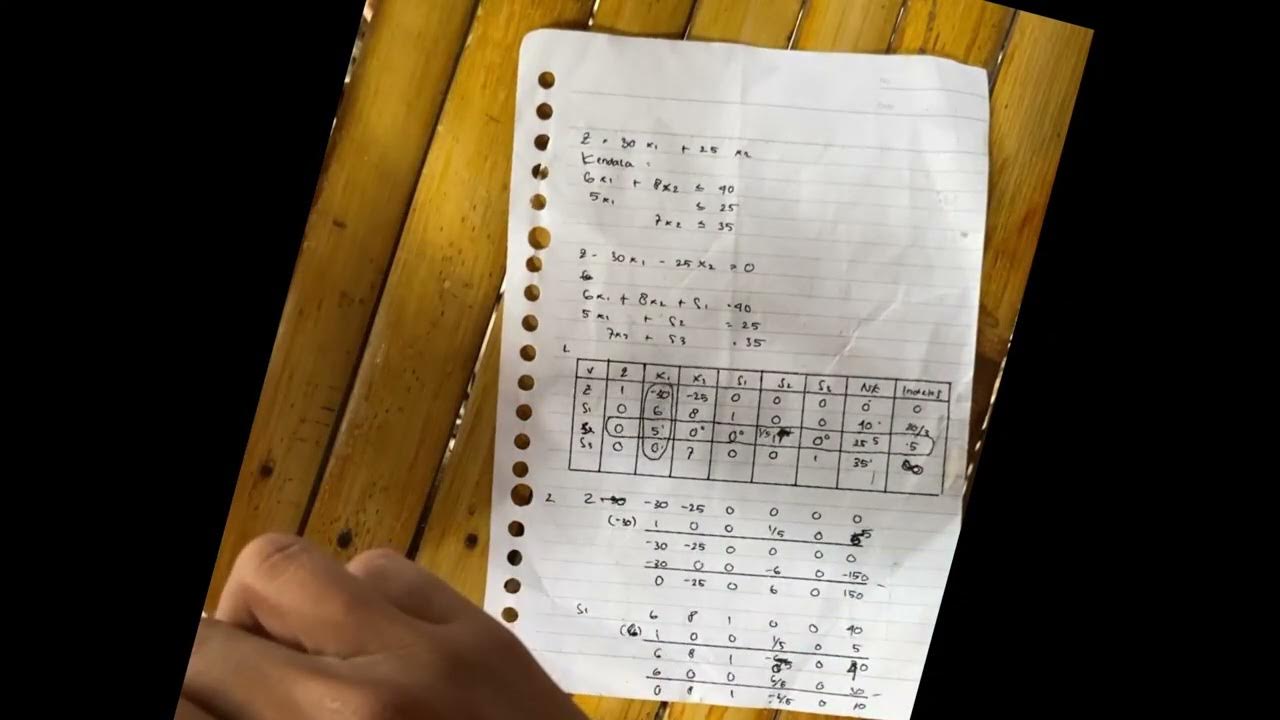 Z = 30 x1 + 25 x2
Kendala =
6x1 + 8x2 ≤ 40
5x1 ≤ 25
7x2 ≤ 35
Z - 30x1 - 25x2 = 0
6x1 + 8x2 + S1 = 40
5x1 + S2 = 25
7x2 + S3 = 35
1.
V Z x1 x2 S1 S2 S3 NK Indeks
Z 1 -30 -25 0 0 0 0 0
S1 0 6 8 1 0 0 40 20/3
S2 0 5 0 0 1/5 0 25 5 5
S3 0 0 7 0 0 1 35 ∞
2. Z -30 -25 0 0 0 0
(-30) 1 0 0 1/5 0 5
-30 -25 0 0 0 0
-30 0 0 -6 0 -150 -
0 -25 0 6 0 150
S1 6 8 1 0 0 40
(6) 1 0 0 1/5 0 5
6 8 1 0 40
6 0 0 6/5 0 30 -
0 8 1 -6/5 0 10